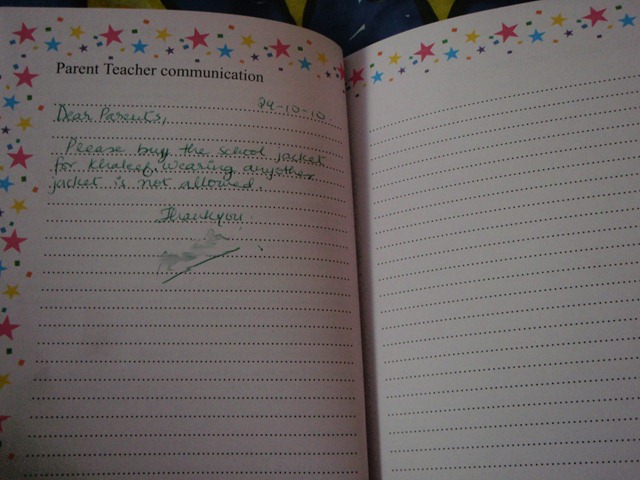 Parent Teacher communication
24-10-10.
Dear Parents,
Please buy the school jacket
for Khaleef. Wearing anyother
jacket is not allowed.
Thankyou.